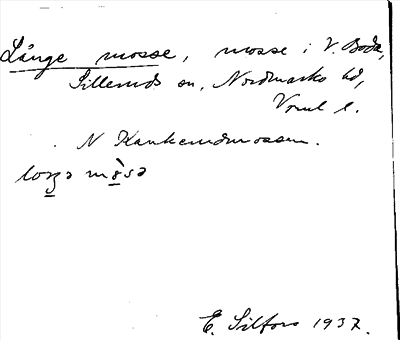 Långe mosse, mosse i V. Boda,
Silleruds sn, Nordmarks hd,
Vrml l.
N Kankerudmossen.
loŋə mòsə
E. Silfors 1937.